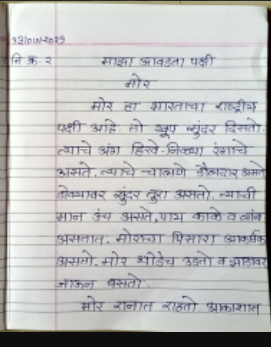 नि क्र २ माझा आवडता पक्षी
मोर
मोर हा भारताचा राष्ट्रीय
पक्षी आहे. तो खूप सुंदर दिसतो.
त्याचे अंग हिरवे-निळ्या रंगाचे
असते. त्याचे चालणे डौलदार असते
डोक्यावर सुंदर तुरा असतो. त्याची
मान उंच असते. पाय काळे व लांब
असतात. मोराचा पिसारा आकर्षक
असतो. मोर थोडेच उडतो व झाडावर
जाऊन बसतो.
मोर रानात राहतो. आकाशात